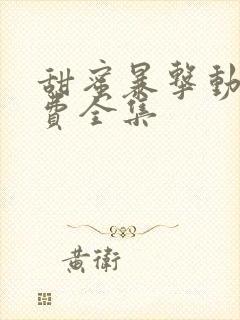 甜蜜暴擊動
費全集
黃衛